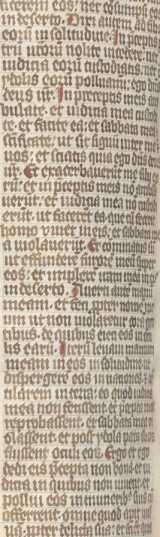 terficerem eos: nec
deserto. Dixi autem ad
eorū in solitudine. In preceptis
trū urorū nolite incedere. nec
iudicia eorū custodiatis. nec
ydolis eorū polluamini. ego dns
deus ur̄. In preceptis meis am
bulate. et iudicia mea custodi
te. et facite ea. et sabbata mea
tificate. ut sit signū inter me
uos. et sciatis quia ego dns
Et exacerbauerūt me filii
rū. et in preceptis meis nō ambula
uerūt. et iudicia mea nō custod
erūt. ut facerēt ea. que cū fecerit
homo uiuet in eis. et sabbata me
a uiolauerūt. Et cōminatus sū
ut effunderē furorē meū super
eos. et implerē iram meā in
in deserto. Auerti autē manū
meam. et feci. propter nomē meū
ut nō uiolaretur corā gen
tibus. de quibus eieci eos in ocu
lis earū. Iterū leuaui manum
meam in eos in solitudine ut
dispergerē eos in nationes. et
tilarem in terras. eo quod iudicia
mea nō fecissent. et precepta mea
reprobassent. et sabbata mea ui
olassent. et post ydola patrū suorū
fuissent oculi eorū. Ergo et ego
dedi eis precepta non bona. et iu
dicia in quibus non uiuent. et
pollui eos in muneribus suis cū
offerrent. omne quod aperit uul
uā. propter delicta sua: et scient